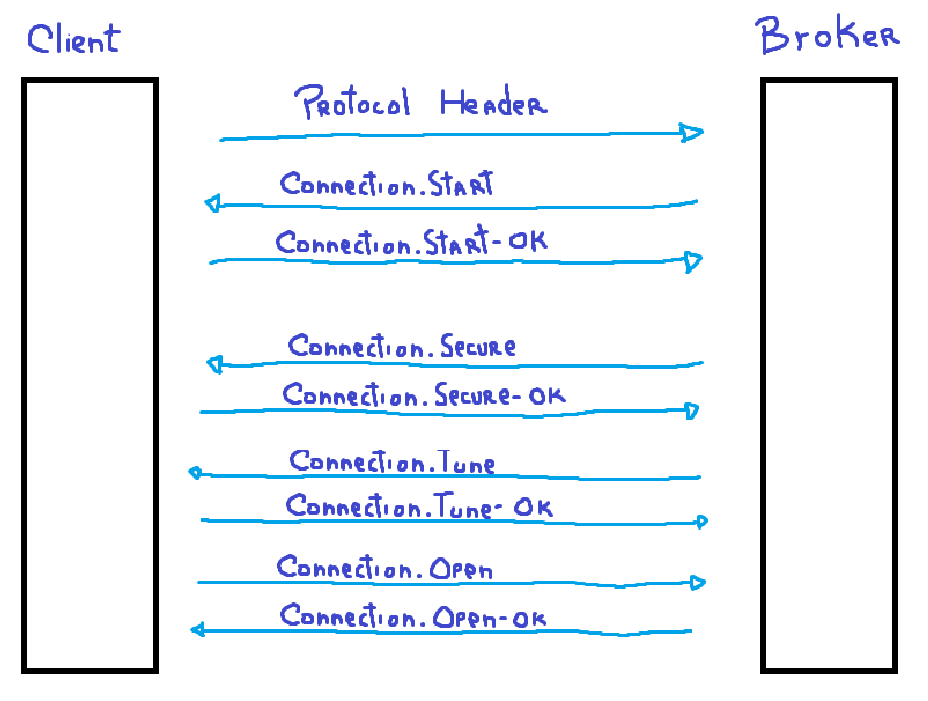 Client
Broker
Protocol Header
Connection.Start
Connection.Start-OK
Connection.Secure
Connection.Secure-OK
Connection.Tune
Connection.Tune-OK
Connection.Open
Connection.Open-OK